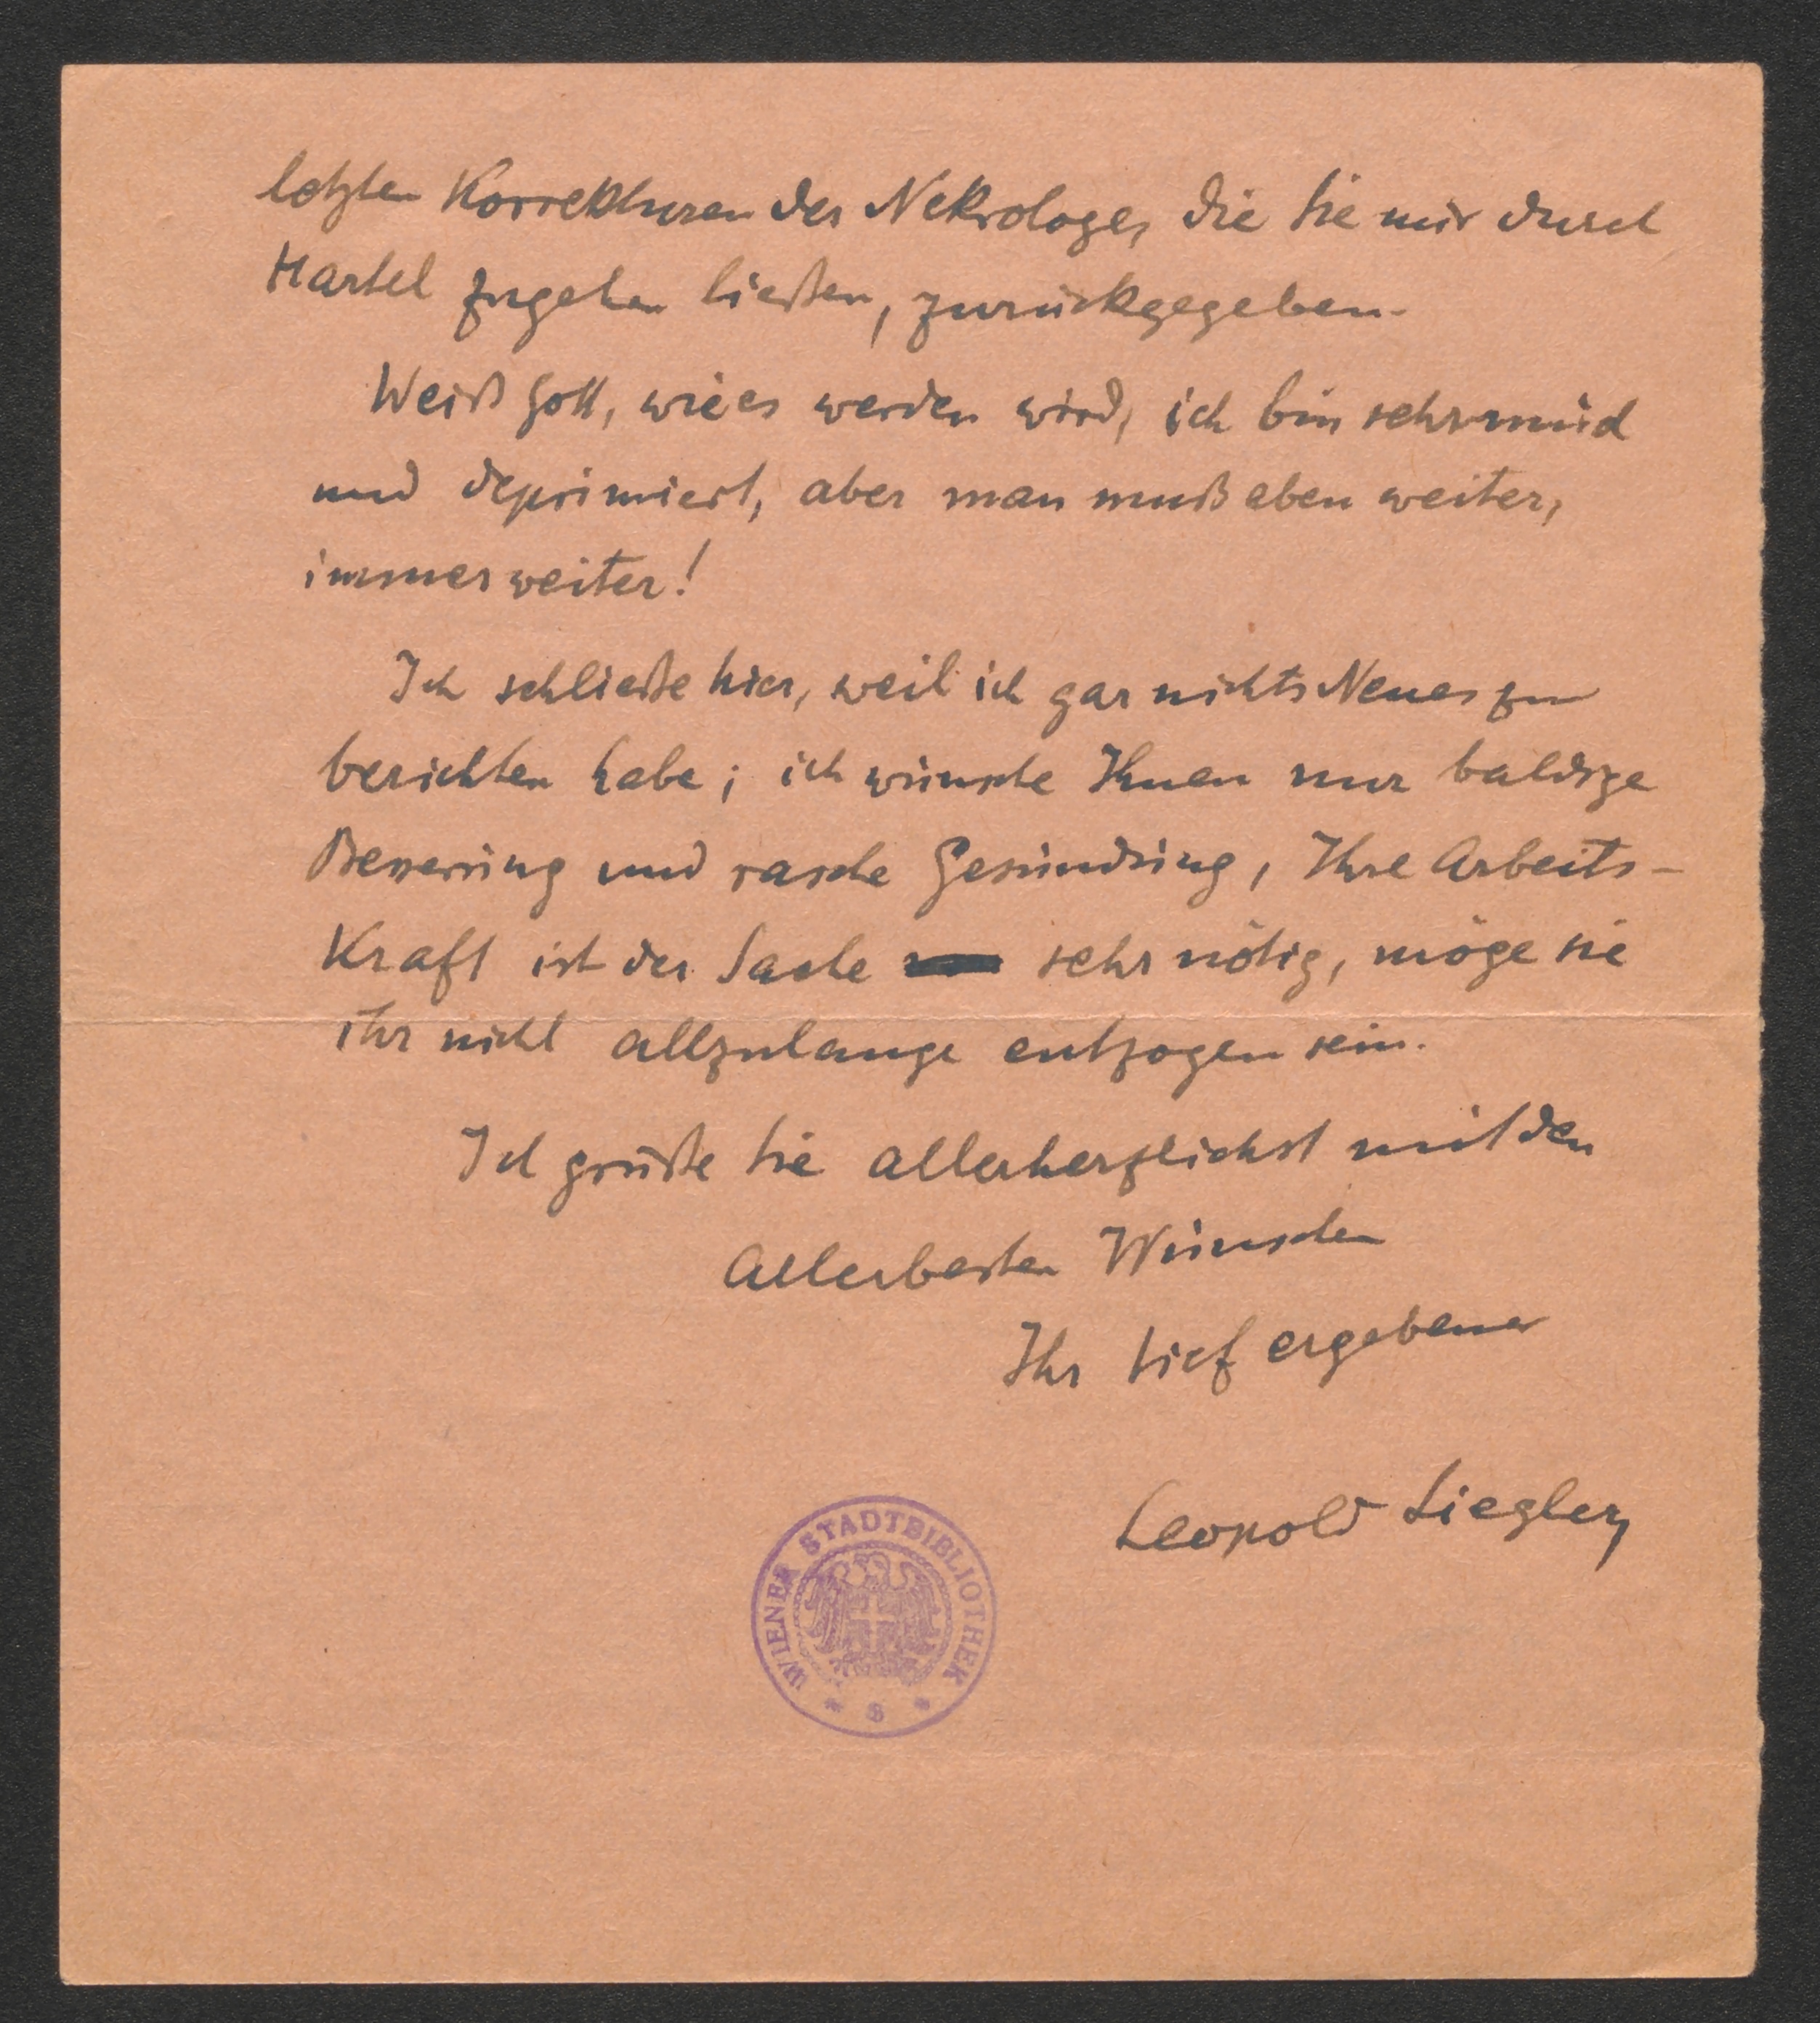 letzten Korrekturen des Nekrologes, die Sie mir durch
Hartel zugehen ließen, zurückgegeben.
Weiß Gott, wie es werden wird, ich bin sehr müd
und deprimiert, aber man muß eben weiter,
immer weiter!
Ich schließe hier, weil ich gar nichts Neues zu
berichten habe; ich wünsche Ihnen nur baldige
Besserung und rasche Gesundung, Ihre Arbeits-
Kraft ist der Sache sehr nötig, möge sie
ihr nicht allzulange entzogen sein.
Ich grüße Sie allerherzlichst mit den
allerbesten Wünschen
Ihr tief ergebener
Leopold Liegler
WIENER STADTBIBLIOTHEK
* S *